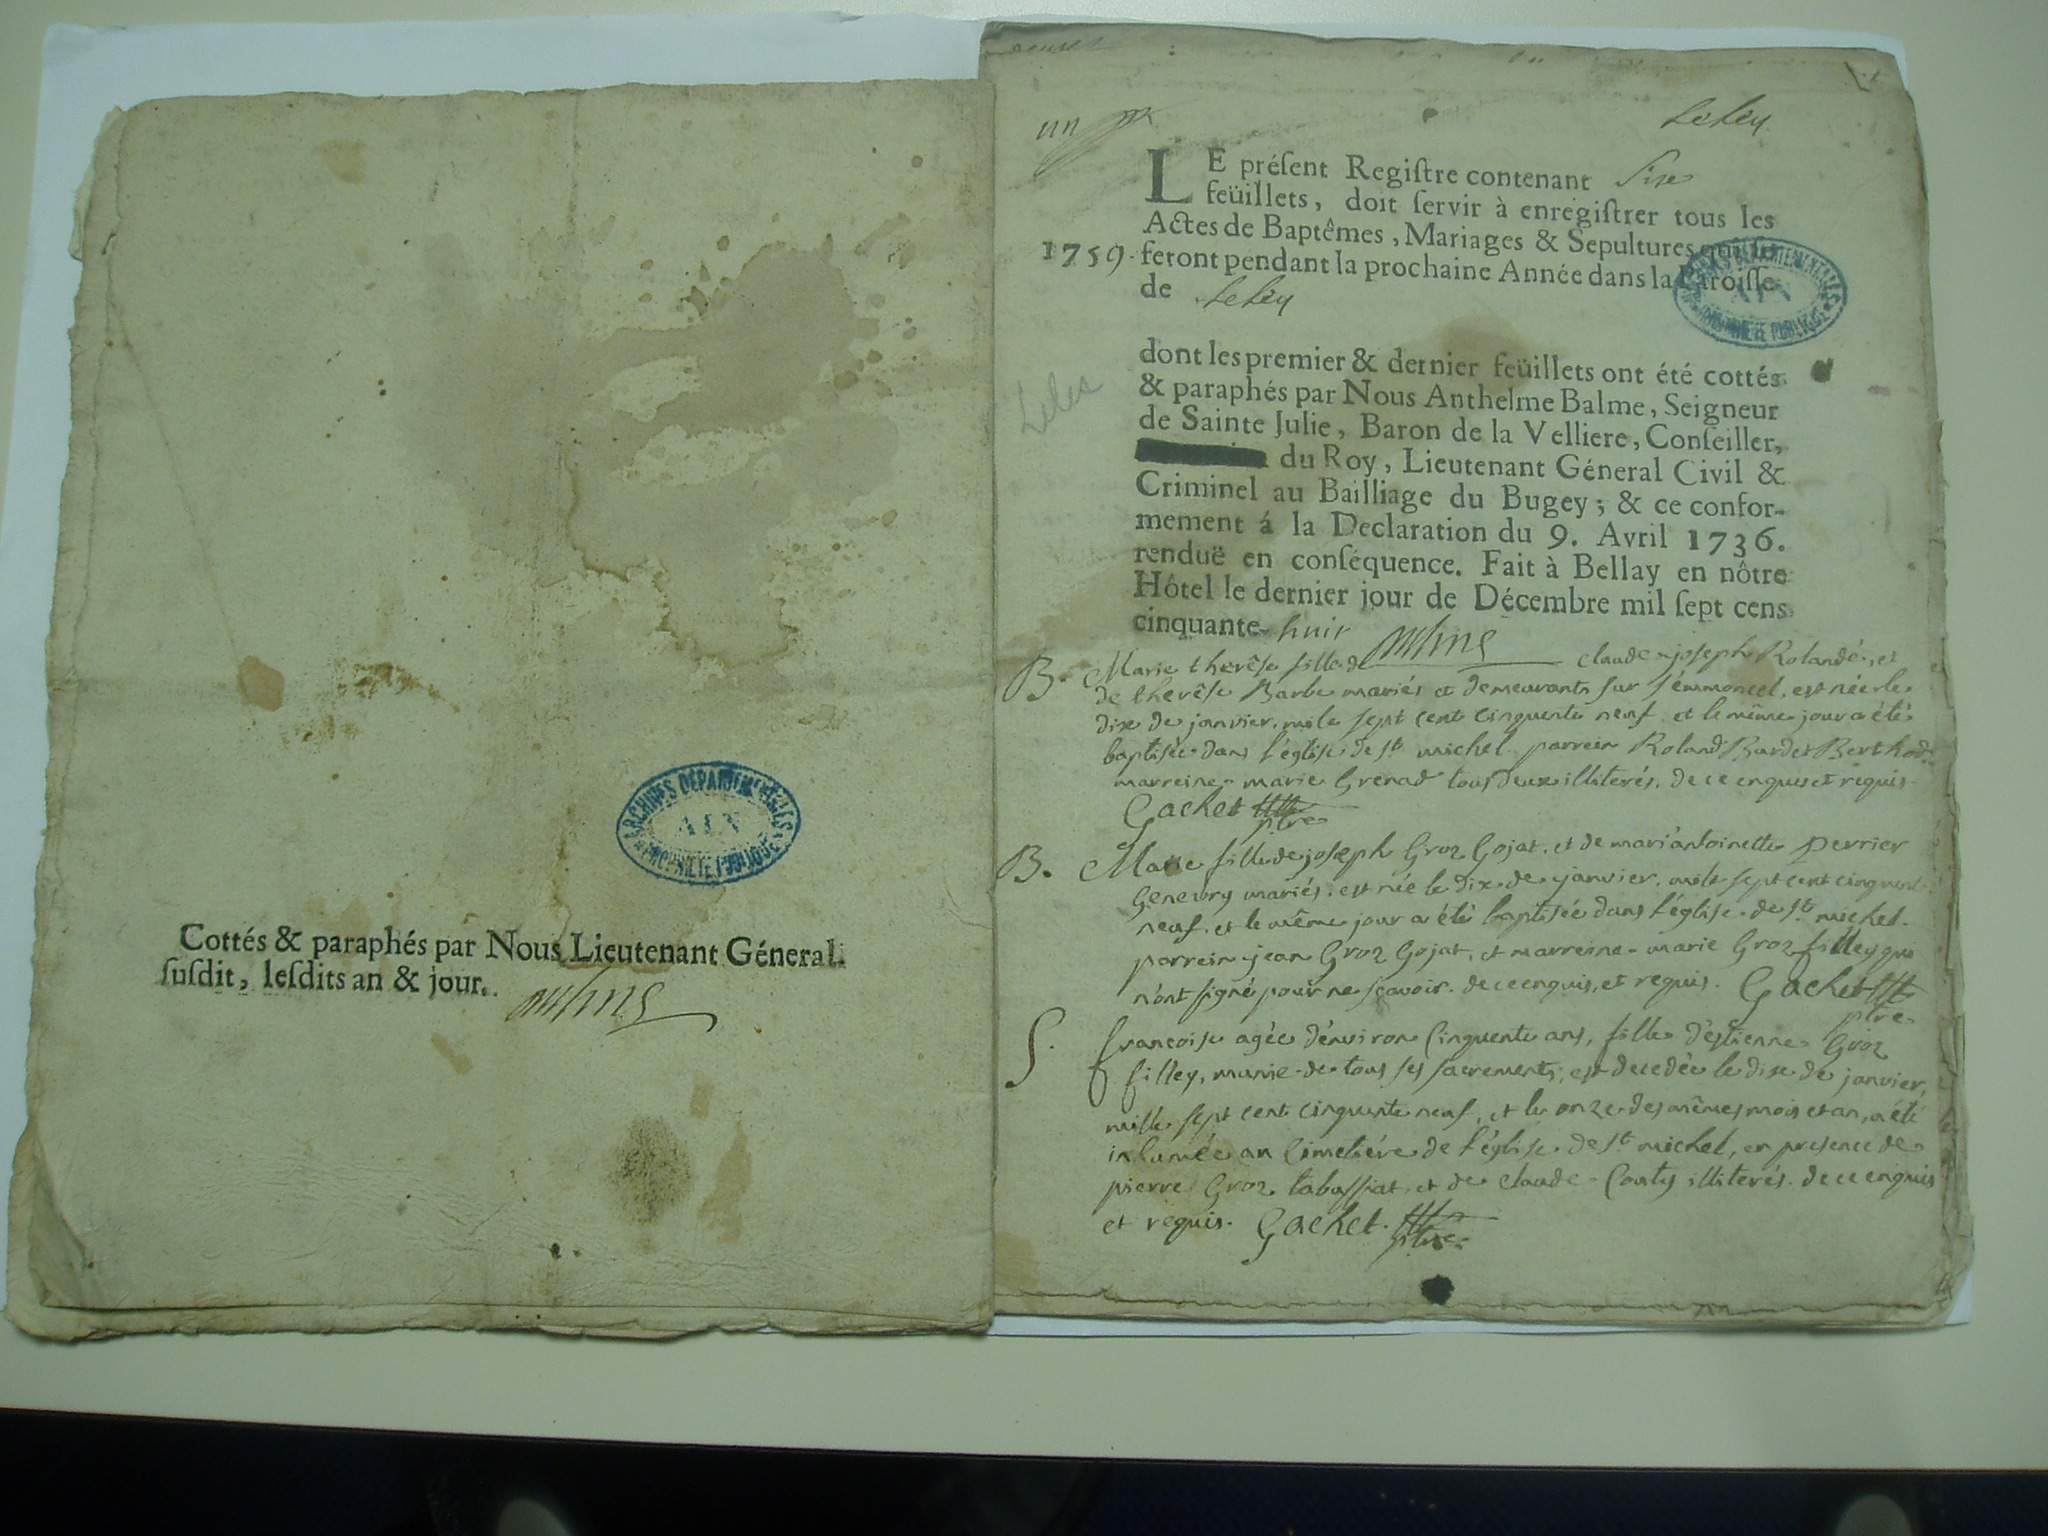 Cottés & paraphés par Nous Lieutenant Géneral
susdit, lesdits an & jour.
ARCHIVES DEPARTEMENTALES
AIN
PROPRIETE PUBLIQUE
un
Leley
LE présent Registre contenant Six
feüillets, doit servir à enregistrer tous les
Actes de Baptêmes, Mariages & Sepultures qui se
1759. feront pendant la prochaine Année dans la Paroisse
de Leley
ARCHIVES DEPARTEMENTALES
AIN
PROPRIETE PUBLIQUE
dont les premier & dernier feüillets ont été cottés
& paraphés par Nous Anthelme Balme, Seigneur
de Sainte Julie, Baron de la Velliere, Conseiller,
du Roy, Lieutenant Géneral Civil &
Criminel au Bailliage du Bugey; & ce confor-
mement á la Declaration du 9. Avril 1736.
renduë en conséquence. Fait à Bellay en nôtre
Hôtel le dernier jour de Décembre mil sept cens
cinquante-huit
B. Marie therêse fille de claude-joseph Rolandé, et
de therêse Barbe mariés et demeurants sur sémoncel, est née le
dix de janvier, mile sept cent cinquente neuf et le même jour a été
baptisée dans l'église de st michel parrein Roland Burdet Berthod
marreine marie Grenad tous deux illiterés, de ce enquis et requis
Gachet ptre
B. Marie fille de joseph Groz Gojat, et de mari'antoinette perrier
Genevry mariés, est née le dix de janvier, mile sept cent cinquent
neuf, et le même jour a été baptisée dans l'église de st michel.
parrein jean Groz Gojat, et marreine marie Groz filley qui
n'ont signé pour ne sçavoir. de ce enquis, et requis. Gachet
ptre
S. francoise agée d'environ Cinquente ans, fille d'estienne Groz
filley, munie de tous ses sacrements, est decedée le dix de janvier,
mille sept cent cinquente neuf, et le onze des mêmes mois et an, a été
inhumée au Cimetiére de l'église de st michel, en presence de
pierre Groz tabussiat, et de claude Conty illiterés. de ce enquis
et requis. Gachet. ptre